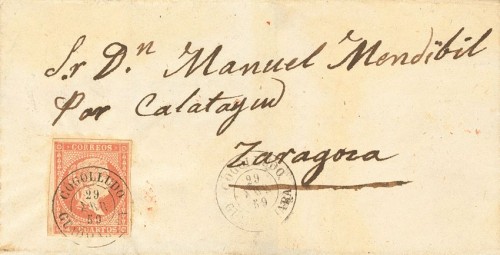 Sr Dn Manuel Mendibil
Por Calatayud
Zaragoza
CORREOS
COGOLLUDO
29
59
COGOLLUDO
29
59